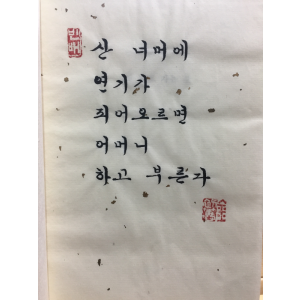 산 너머에
연기가
죄어오르면
어머니
하고 부른다